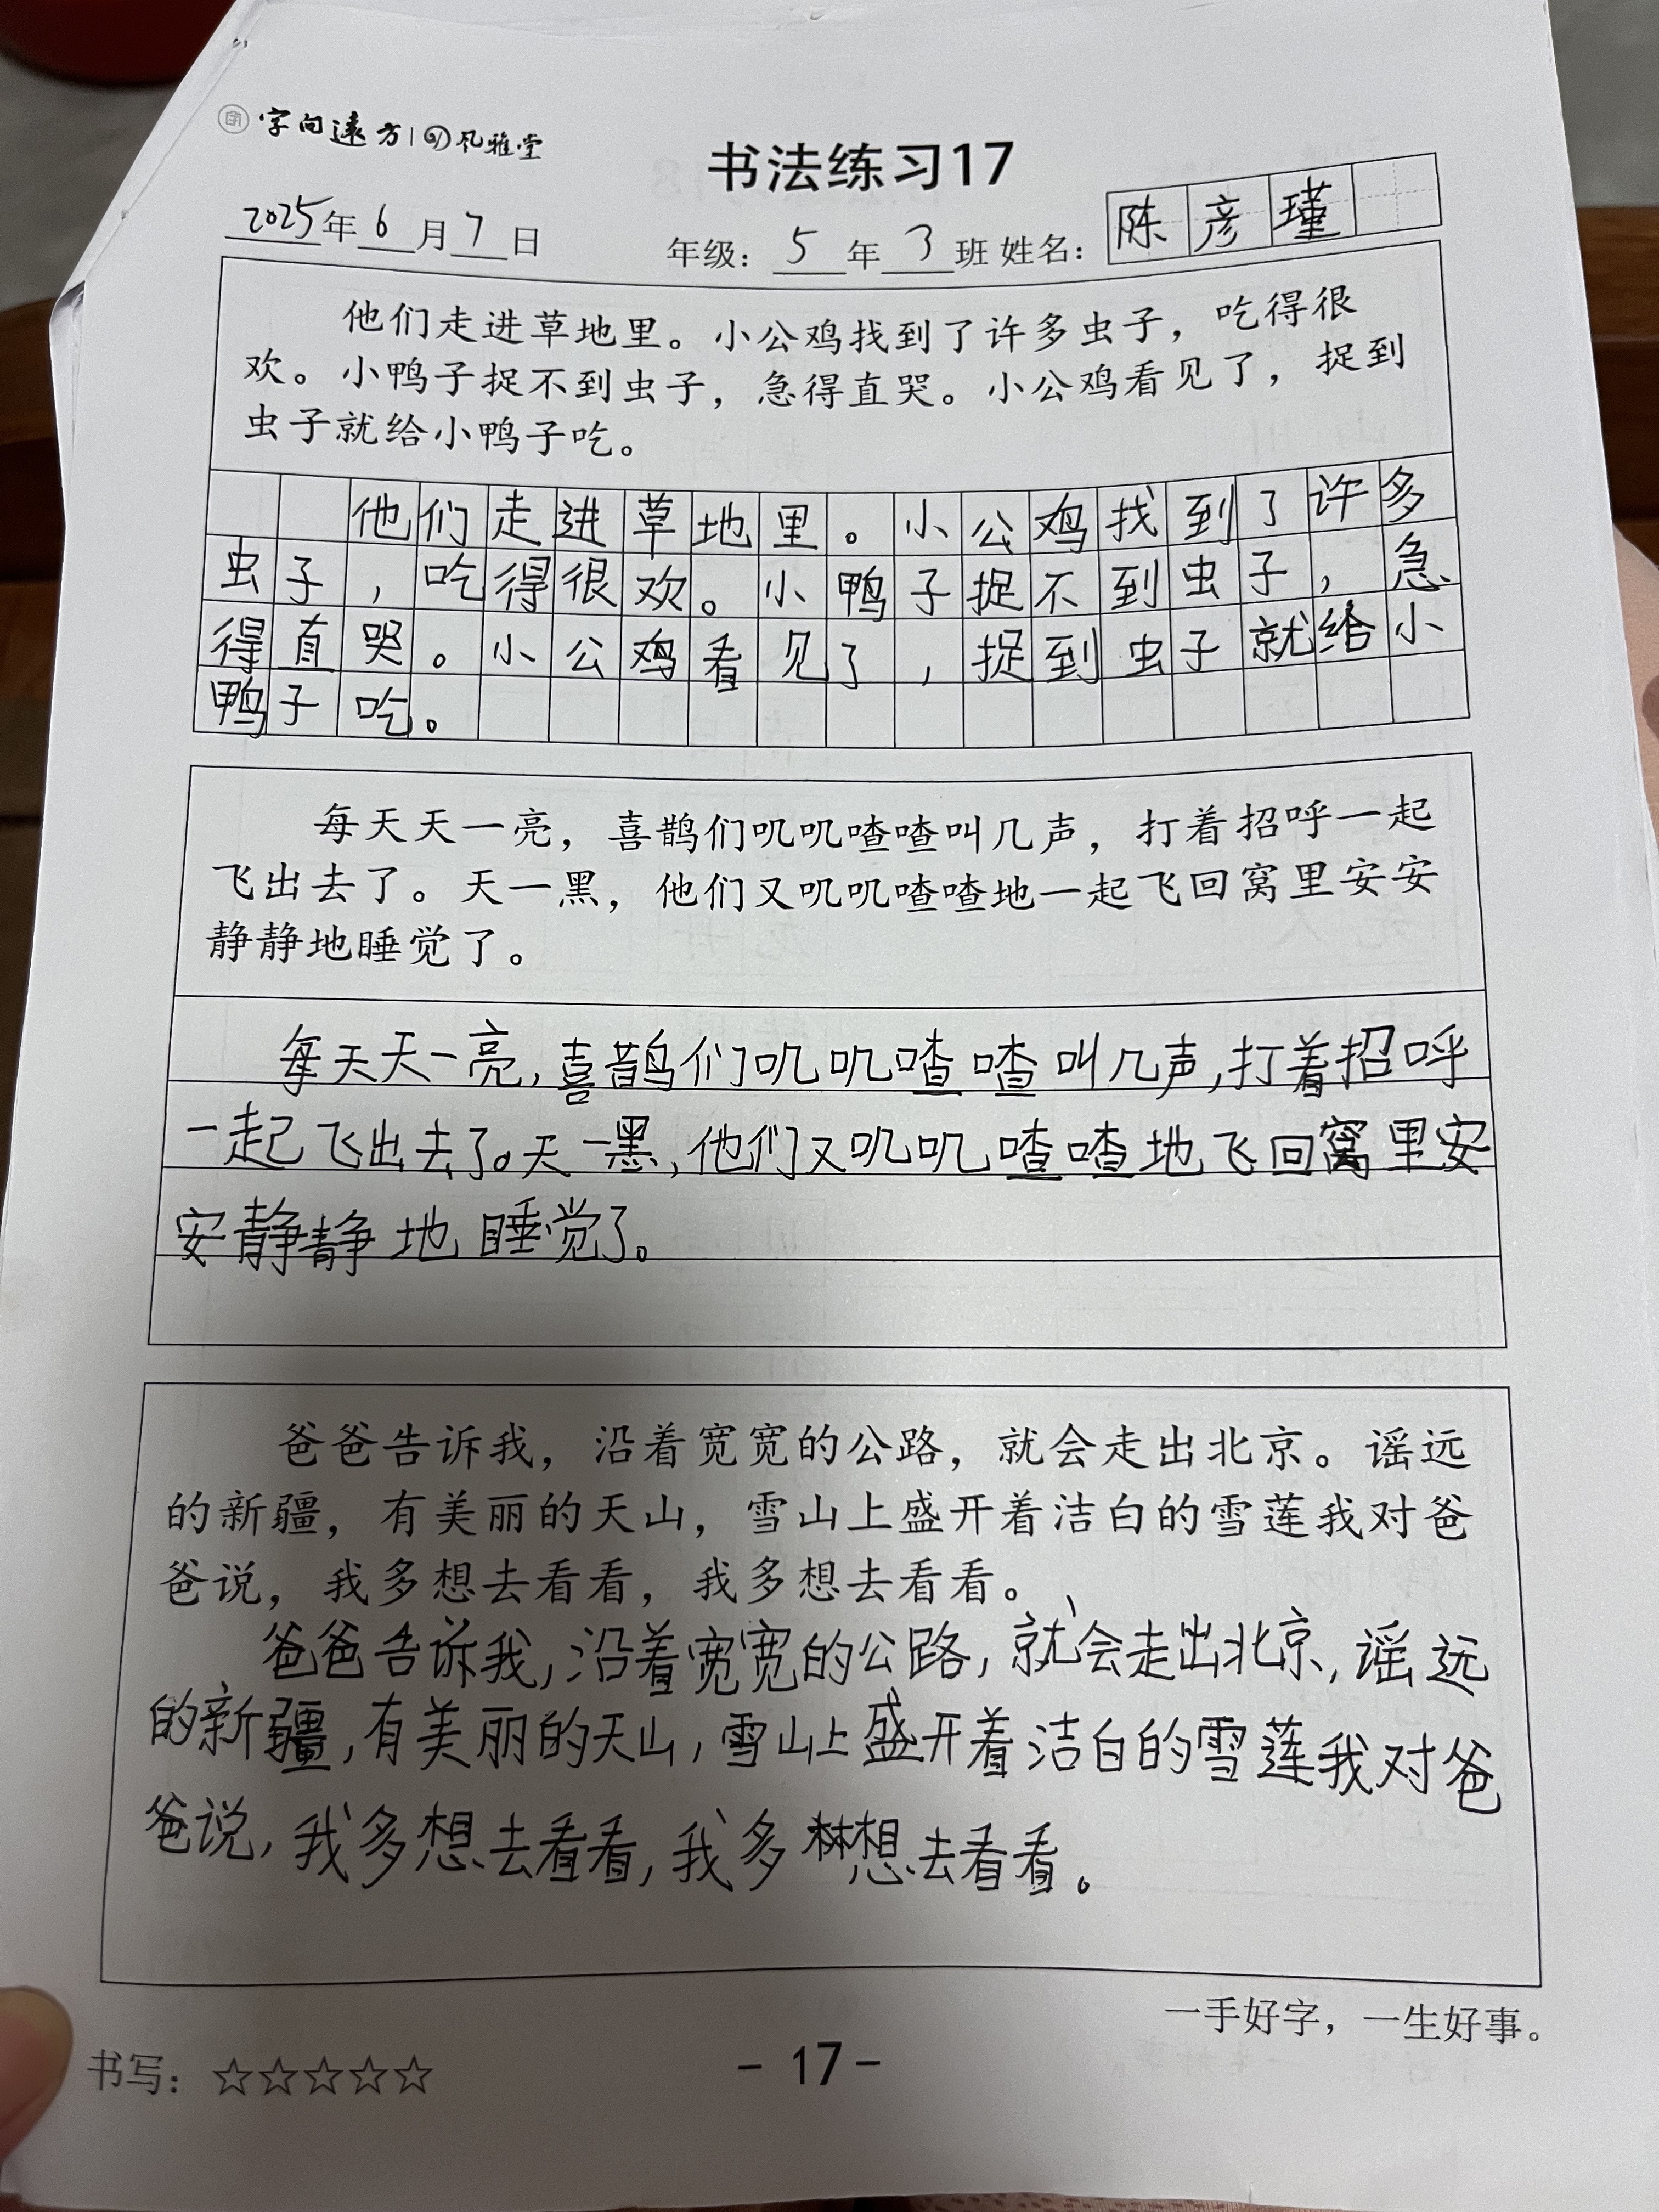 字向遠方 | 风雅堂
书法练习17
2025年6月7日 年级：5年3班 姓名：陈彦瑾
他们走进草地里。小公鸡找到了许多虫子，吃得很
欢。小鸭子捉不到虫子，急得直哭。小公鸡看见了，捉到
虫子就给小鸭子吃。
他们走进草地里。小公鸡找到了许多
虫子，吃得很欢。小鸭子捉不到虫子，急
得直哭。小公鸡看见了，捉到虫子就给小
鸭子吃。
每天天一亮，喜鹊们叽叽喳喳叫几声，打着招呼一起
飞出去了。天一黑，他们又叽叽喳喳地一起飞回窝里安安
静静地睡觉了。
每天天一亮，喜鹊们叽叽喳喳叫几声，打着招呼
一起飞出去了。天一黑，他们又叽叽喳喳地飞回窝里安
安静静地睡觉了。
爸爸告诉我，沿着宽宽的公路，就会走出北京。谣远
的新疆，有美丽的天山，雪山上盛开着洁白的雪莲我对爸
爸说，我多想去看看，我多想去看看。
爸爸告诉我，沿着宽宽的公路，就会走出北京，谣远
的新疆，有美丽的天山，雪山上盛开着洁白的雪莲我对爸
爸说，我多想去看看，我多想去看看。
一手好字，一生好事。
书写：☆☆☆☆☆
- 17 -